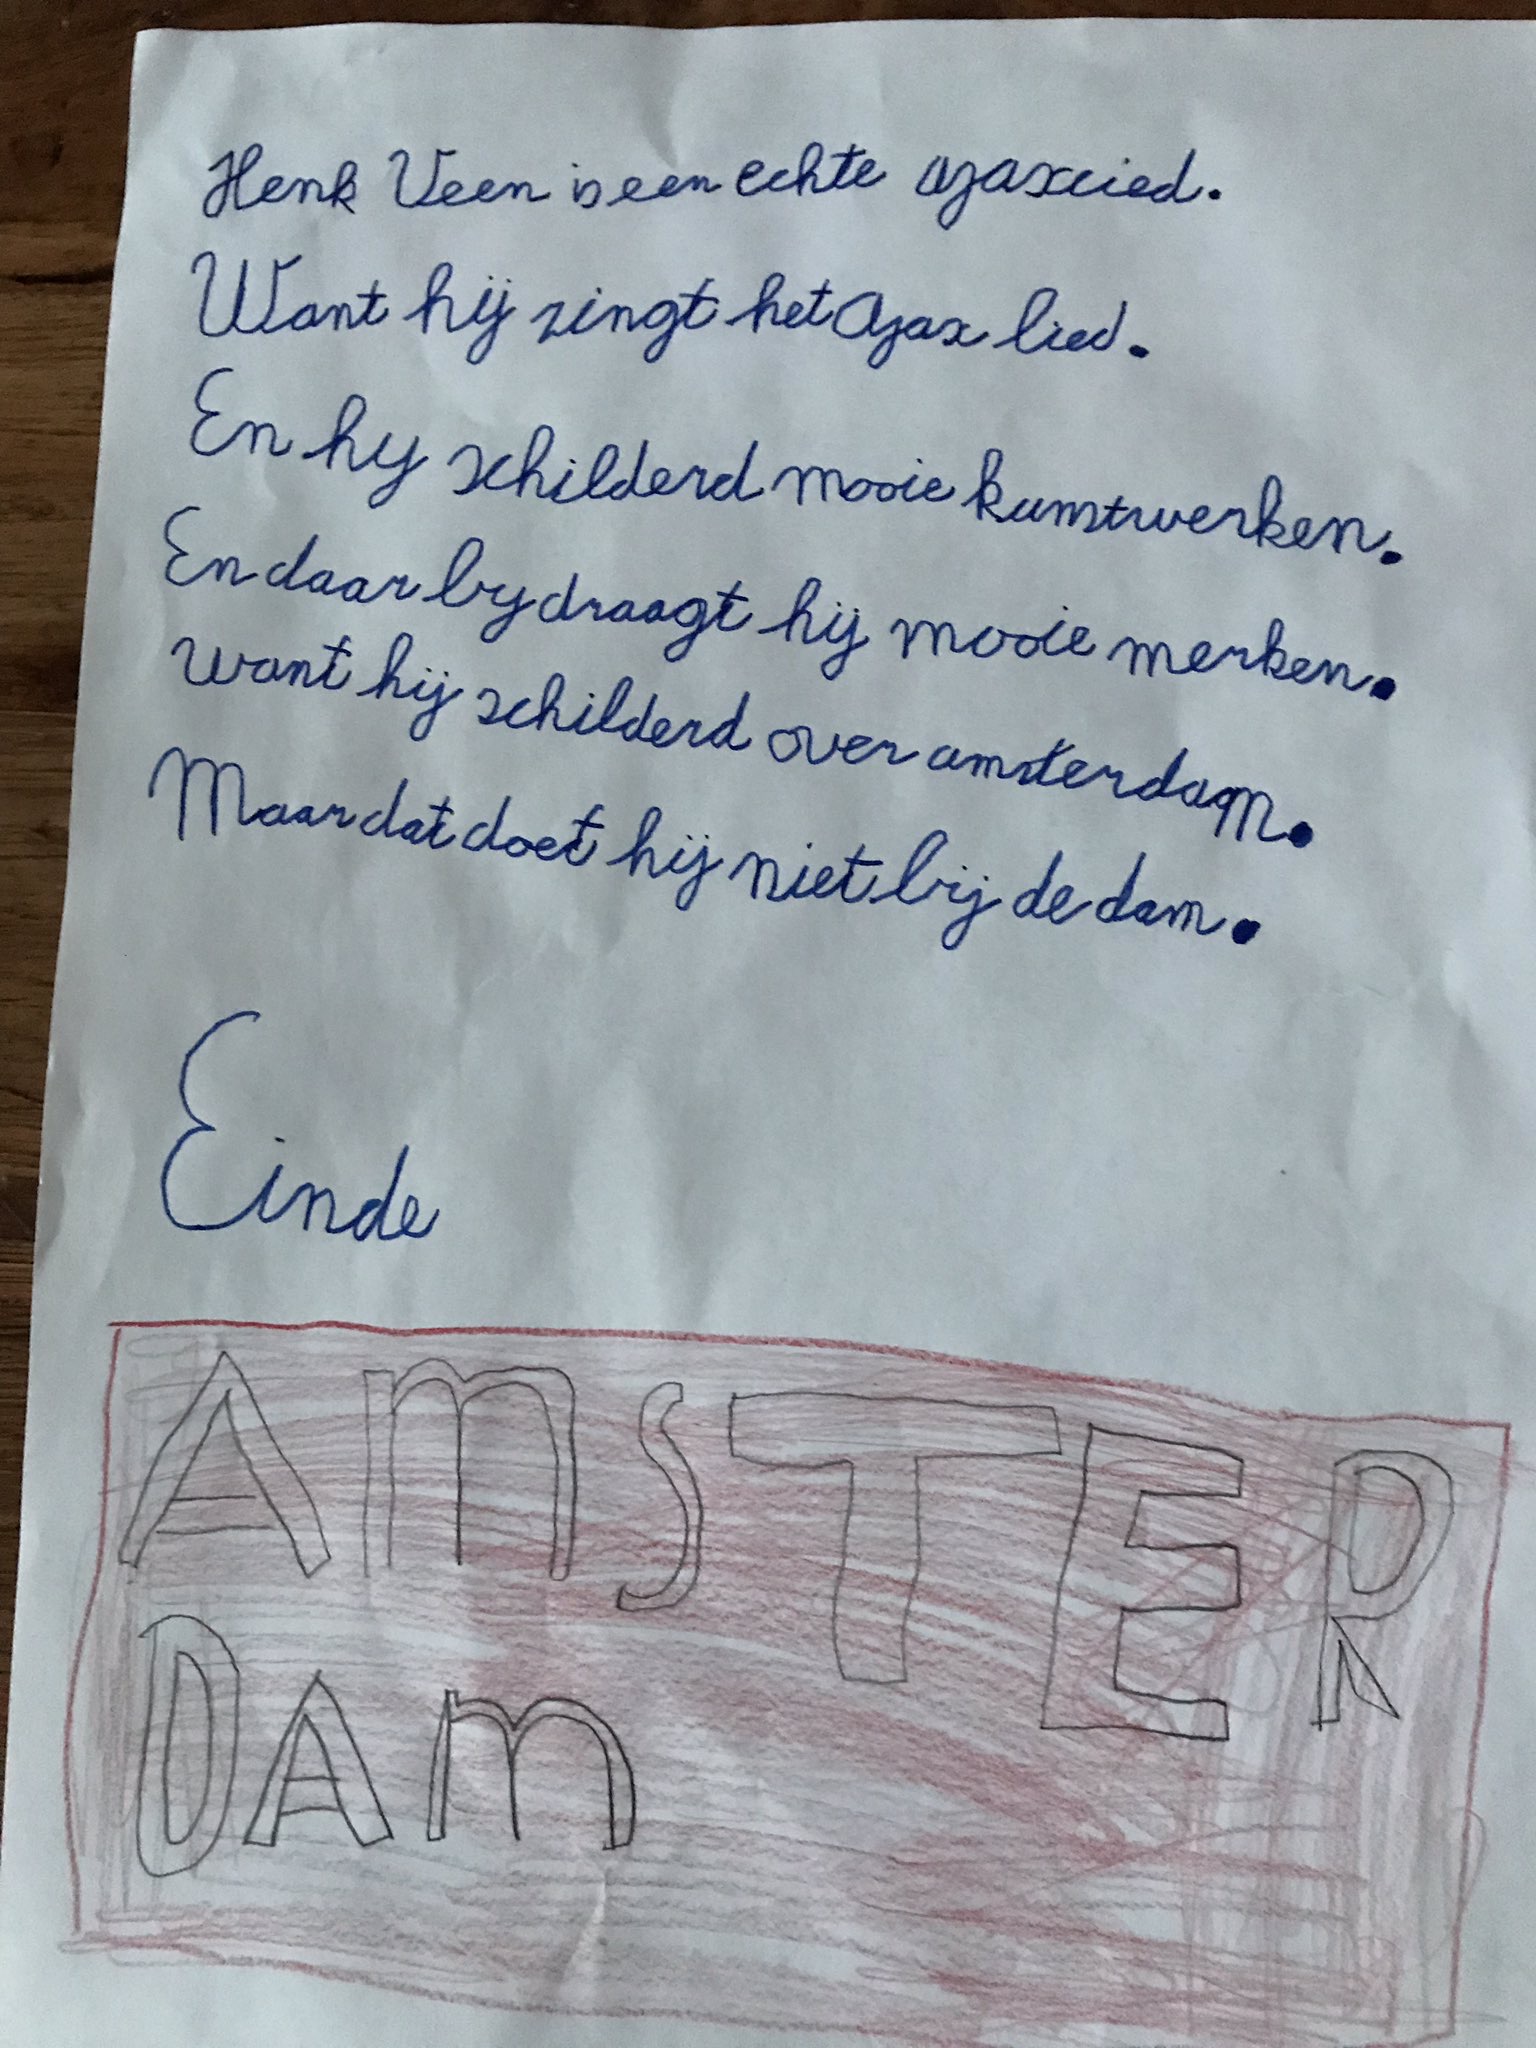 Henk Veen is een echte ajaxcied.
Want hij zingt het Ajax lied.
En hij schilderd mooie kunstwerken.
En daar bij draagt hij mooie merken.
want hij schilderd over amsterdam.
Maar dat doet hij niet bij de dam.
Einde
AMSTER
DAM